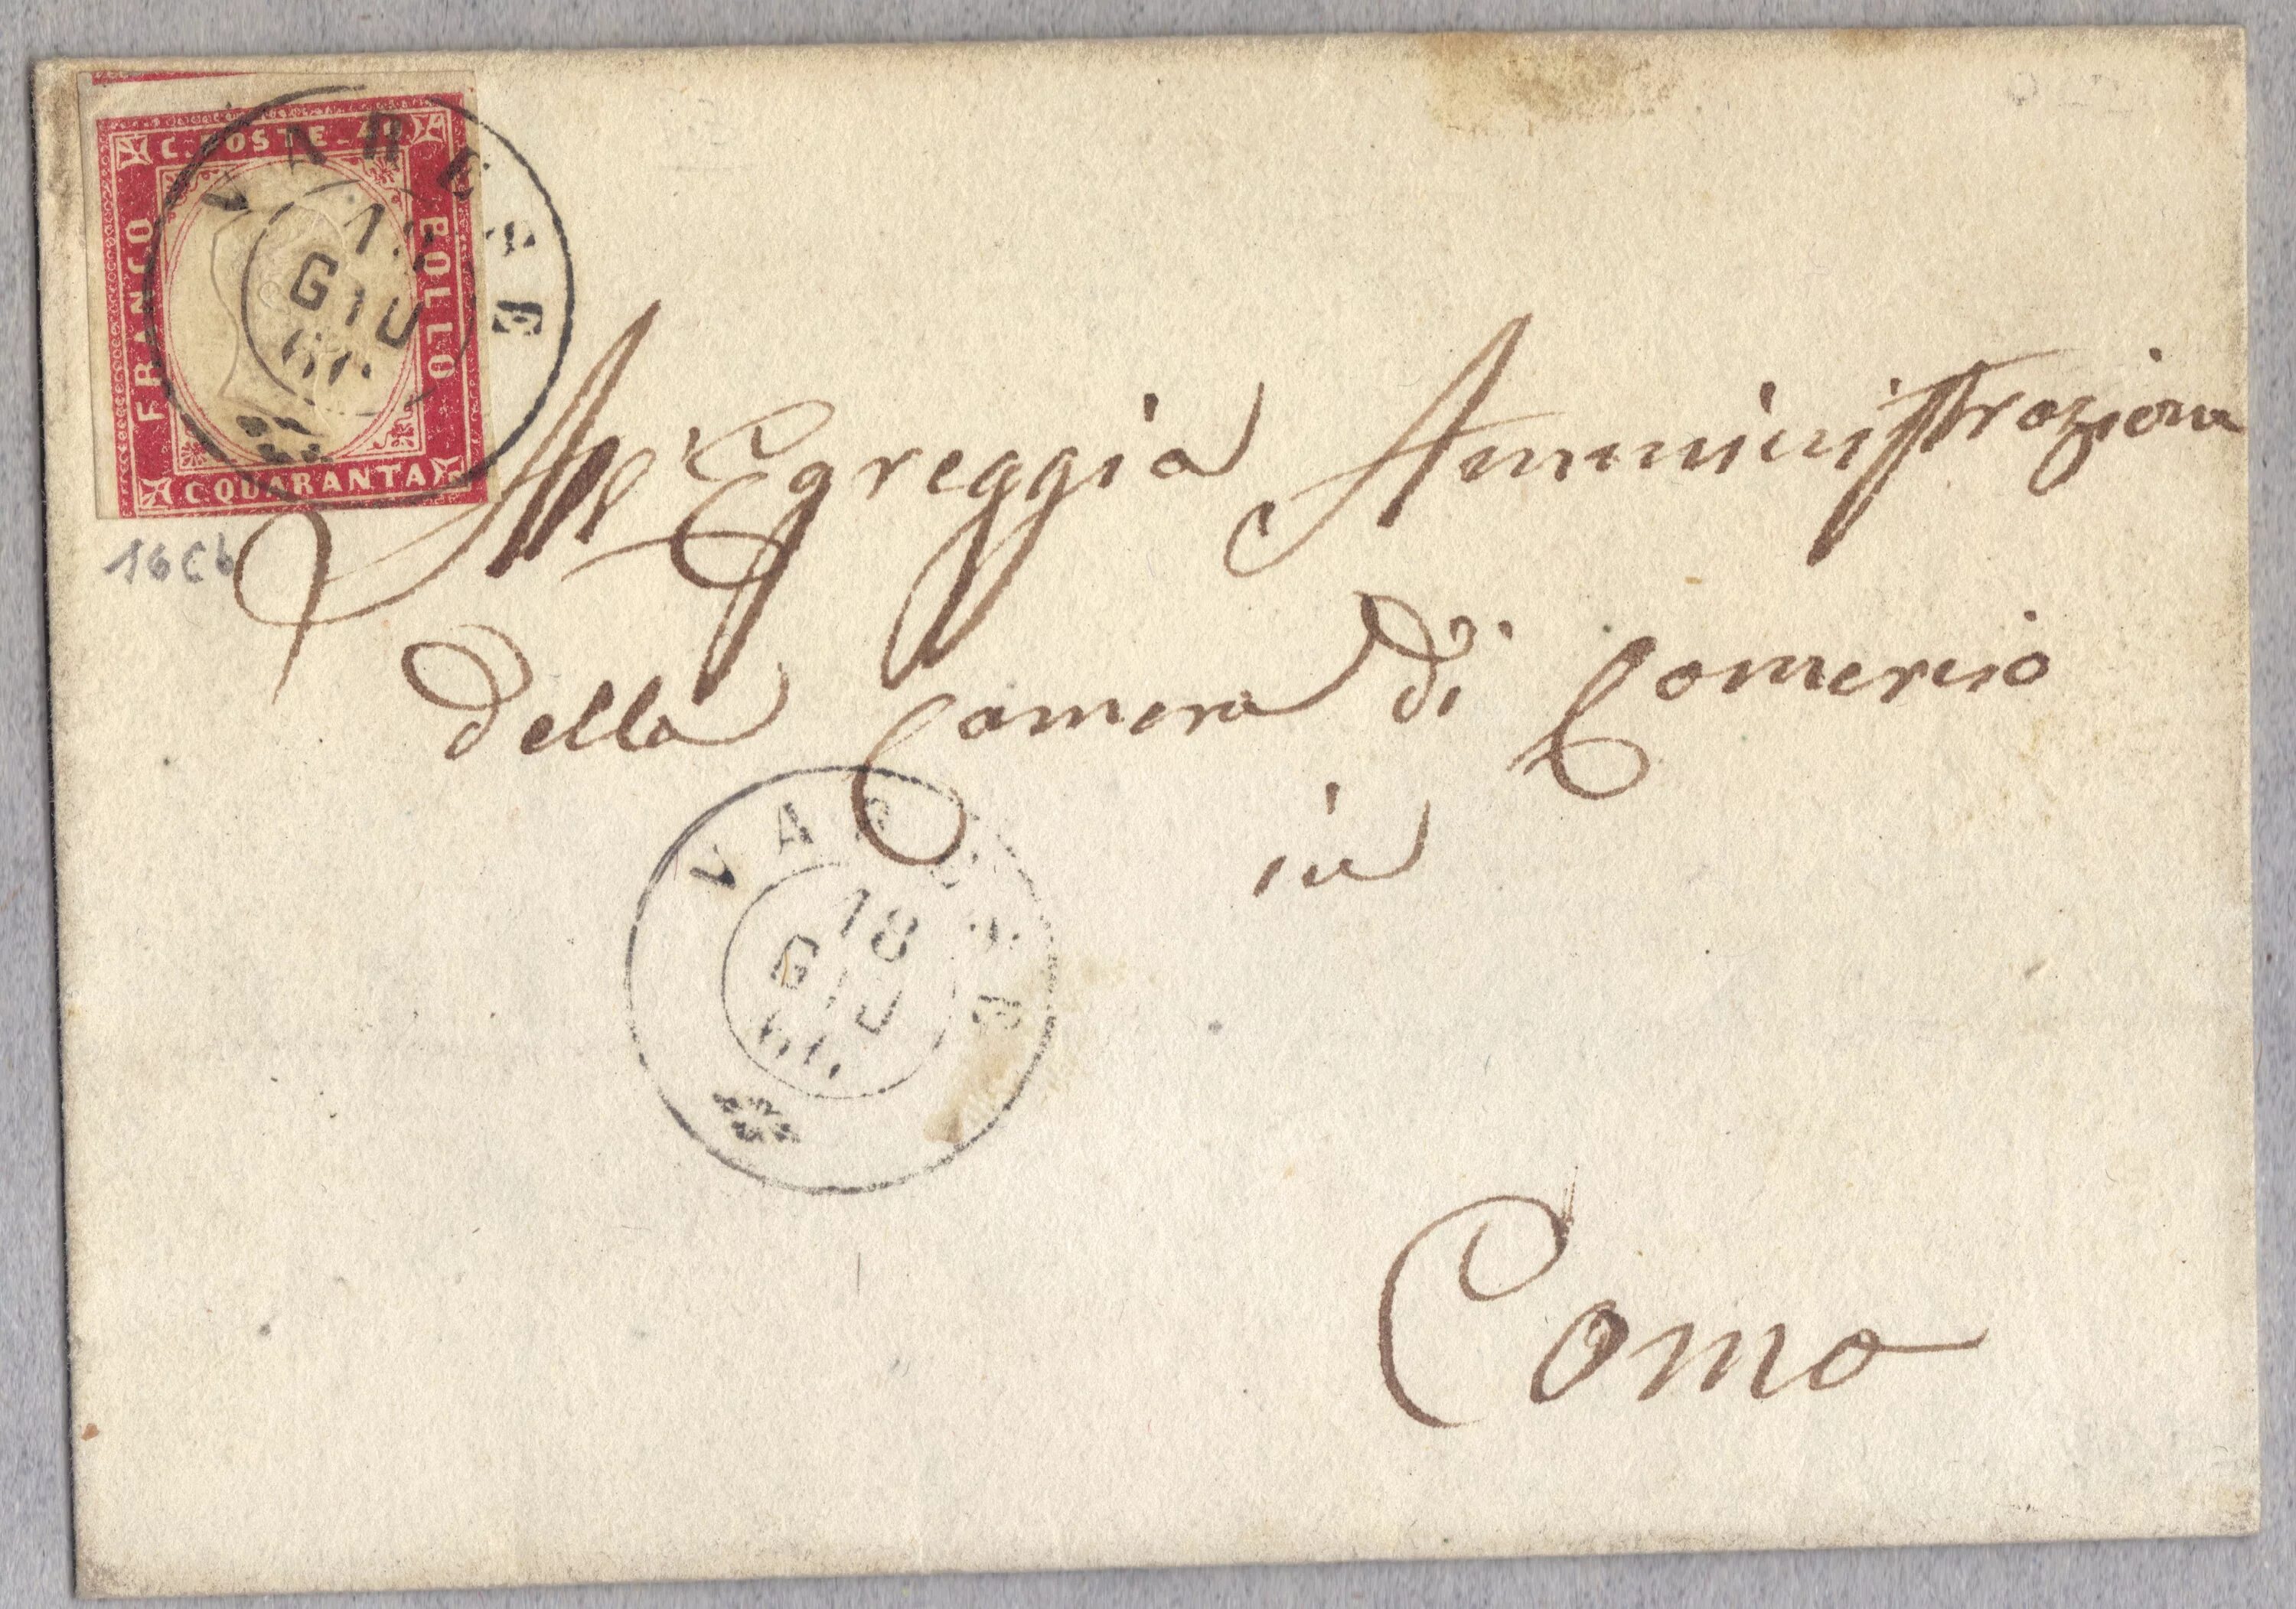 C. POSTE. 40
FRANCO
BOLLO
C QUARANTA
VARESE
GIU
16Cb
All'Egreggia Amministrazione
della Camera di Comercio
in
VARESE
18
GIU
Como